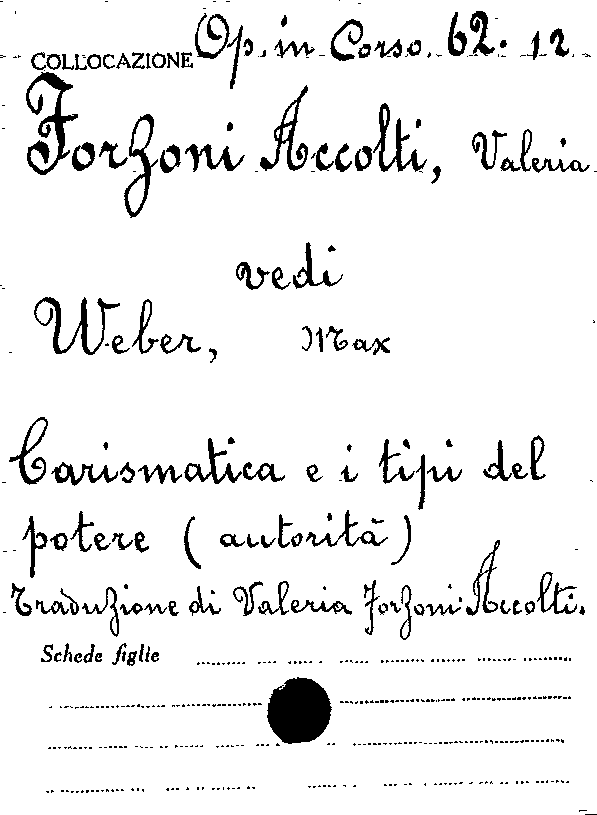 COLLOCAZIONE Op. in Corso. 62. 12
Forzoni Accolti, Valeria
vedi
Weber, Max
Carismatica e i tipi del
potere (autorità)
Traduzione di Valeria Forzoni Accolti.
Schede figlie